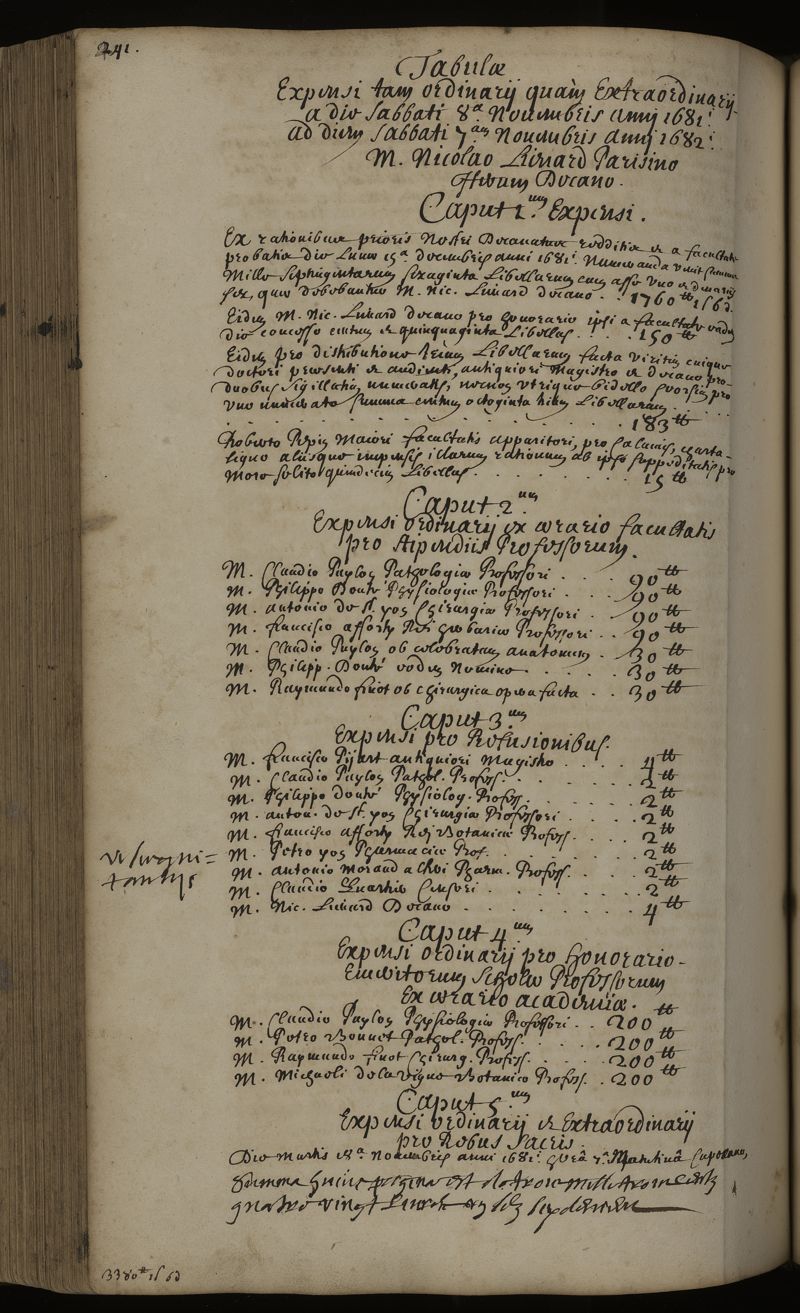 241.
Tabulæ
Expensi tam ordinarij quàm Extraordinarij
a die sabbati 8ª Nouembris annj 1681i
ad diem sabbati 7am Nouembris annj 1682i
M. Nicolao Lienard Parisino
iterum Decano.
Caput 1um Expensi.
Ex rationibus prioris nostri Decanatus redditis et a facultate
probatis die Lunæ 15ª decembris anni 1681i Numeranda venit summa
Mille septingentarum sexaginta Libellarum cum asse vno et denarijs
sex, quæ debebantur M. Nic. Lienard decano . . 1760tt 1s 6d.
Eidem M. Nic. Lienard decano pro honorario ipsi a facultate eadem
die concesso centum et quinquaginta Libellas . . . . 150tt
Eidem pro distributione trium Libellarum facta viritim cuique
doctori præsenti et audienti, antiquiori magistro et decano pro
duobus sigillatim numeratis, necnon vtrique bidello seorsim pro
vno numerato summa centum octoginta trium Libellarum . . .
. . . . . . . . . . . 183tt
Roberto Pepin Maiori facultatis apparitori, pro calamis, charta-
que aliisque impensis illarum rationum ab ipso suppeditatis pro
more solito quindecim Libellas . . . . . . . . 15tt
Caput 2um
Expensi ordinarij ex ærario facultatis
pro stipendiis Professorum.
M. Claudio Puylon Pathologiæ Professori . . . 90tt
M. Philippo Douté Physiologiæ Professori . . . 90tt
M. Antonio de St. yon Chirurgiæ Professori . . 90tt
M. francisco afforty Rei herbariæ Professori . . 90tt
M. Claudio Puylon ob celebratam anatomen . . 30tt
M. Philipp. Douté eodem Nomine . . . . . 30tt
M. Raymundo finot ob chirurgica opera facta . . 30tt
Caput 3um
Expensi pro Refusionibus.
M. francisco Pijart antiquiori Magistro . . . . 4tt
M. Claudio Puylon Pathol. Profess. . . . . . 2tt
M. Philippo Douté Physiolog. Profess. . . . . . 2tt
M. anton. de St. yon Chirurgiæ Professori . . . 2tt
M. francisco afforty Rei Botanicæ Profess. . . . 2tt
M. Petro yon Pharmaciæ Prof. . . . . . . 2tt
M. Antonio Morand Pharm. Profess. . . 2tt
M. Claudio Quartier Censori . . . . . . . 2tt
M. Nic. Lienard Decano . . . . . . . . 4tt
Caput 4um
Expensi ordinarij pro Honorario
Emeritorum Scholæ Professorum
Ex ærario academiæ.
M. Claudio Puylon Physiologiæ Professori . . 200tt
M. Petro Bonnet Pathol. Profess. . . . . 200tt
M. Raymundo finot Chirurg. Profess. . . . . 200tt
M. Michaeli de la vigne Botanico Profess. . 200tt
Caput 5um
Expensi ordinarij et Extraordinarij
pro Rebus Sacris.
Die martis 18ª Nouembris anni 1681i horâ 7ª Matutinâ
Summa huius paginæ est de trois mille trois cents
quatre vingt Liures un sols six deniers
3380tt 1s 6d